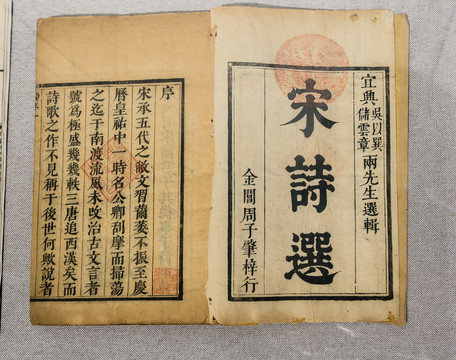 宜興吳以巽儲雲章兩先生選輯
宋詩選
金閶周子肇梓行
序
宋承五代之敝文習薾萎不振至慶
曆皇祐中一時名公卿刮摩而掃蕩
之迄于南渡流風未攺治古文言者
號為極盛幾幾軼三唐追西漢矣而
詩歌之作不見稱于後世何歟說者